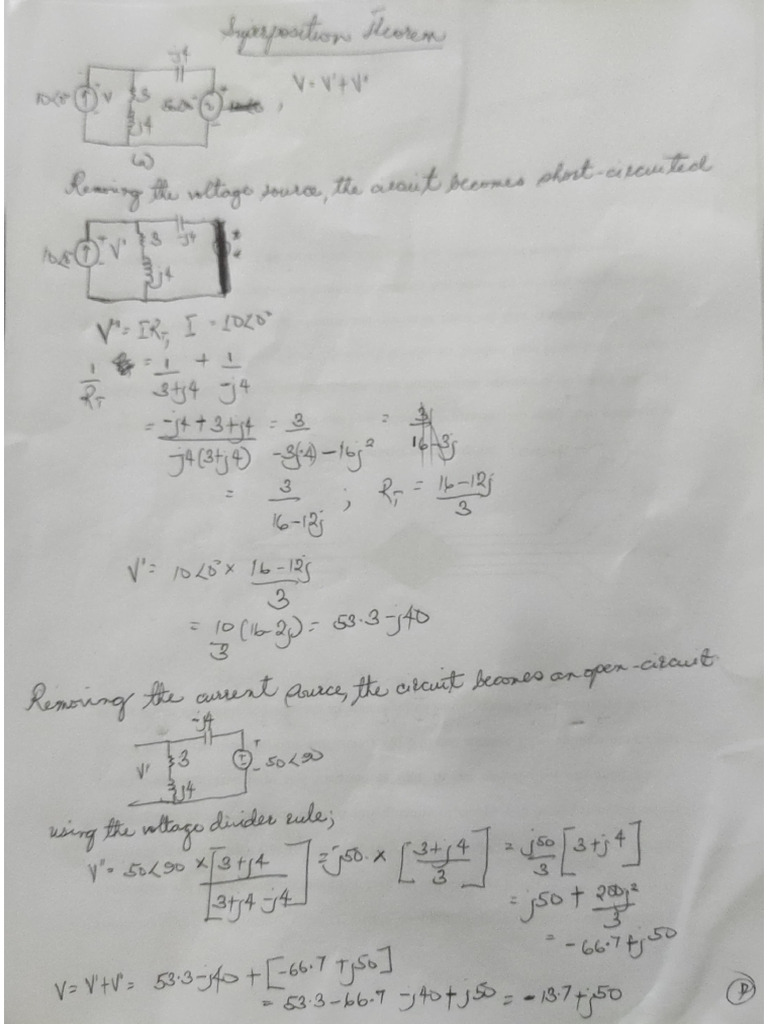 Superposition Theorem
-j4
10<0° V 3 50<90
j4
V = V'+V"
(a)
Removing the voltage source, the circuit becomes short-circuited
10<0° V' 3 -j4
j4
V' = IR_T, I = 10<0°
1/R_T = 1/(3+j4) + 1/(-j4)
= (-j4+3+j4)/(-j4(3+j4)) = 3/(-3j(4)-16j²) = 3/(16-3j)
= 3/(16-12j) ; R_T = (16-12j)/3
V' = 10<0° × (16-12j)/3
= 10/3 (16-2j) = 53.3-j40
Removing the current source, the circuit becomes an open-circuit
-j4
V' 3 50<90
j4
using the voltage divider rule;
V" = 50<90 × [(3+j4)/(3+j4-j4)] = j50 × [(3+j4)/3] = j50/3 [3+j4]
= j50 + 200j²/3
= -66.7+j50
V = V'+V" = 53.3-j40 + [-66.7+j50]
= 53.3-66.7-j40+j50 = -13.7+j50